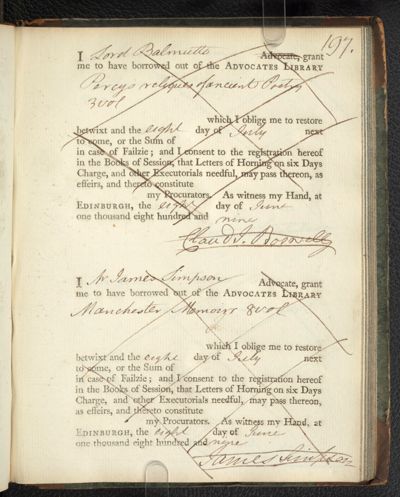 197.
I Lord Balmuto Advocate, grant
me to have borrowed out of the ADVOCATES LIBRARY
Percys reliques of ancient Poetry
3 vol
which I oblige me to restore
betwixt and the eight day of July next
to come, or the Sum of
in case of Failzie; and I consent to the registration hereof
in the Books of Session, that Letters of Horning on six Days
Charge, and other Executorials needful, may pass thereon, as
effeirs, and thereto constitute
my Procurators. As witness my Hand, at
EDINBURGH, the eight day of June
one thousand eight hundred and nine
Claud I. Boswell
I Mr James Simpson Advocate, grant
me to have borrowed out of the ADVOCATES LIBRARY
Manchester Memoirs 8 vol
which I oblige me to restore
betwixt and the eight day of July next
to come, or the Sum of
in case of Failzie; and I consent to the registration hereof
in the Books of Session, that Letters of Horning on six Days
Charge, and other Executorials needful, may pass thereon,
as effeirs, and thereto constitute
my Procurators. As witness my Hand, at
EDINBURGH, the eight day of June
one thousand eight hundred and nine
James Simpson